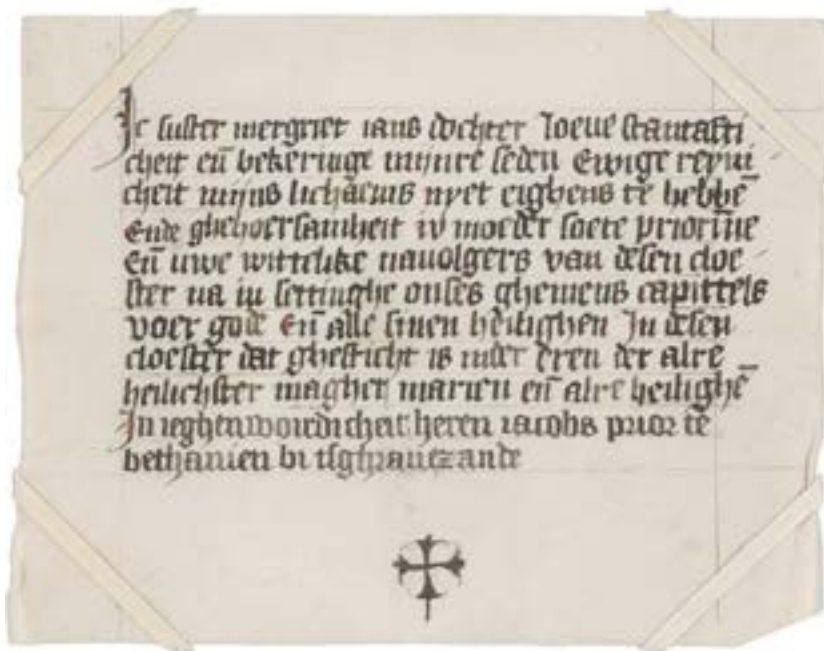 Ic suster mergriet ians dochter Loeue stantafti
cheit eñ bekeringe mijnre seden Ewige reyni
cheit mijns lichaems nyet eighens te hebbē
Ende ghehoersamheit iv moeder soete priorīne
Eñ uwe wittelike navolgers van desen cloe
ster na in settinghe onses ghemens capittels
voer gode Eñ alle sinen heilighen In desen
cloester dat ghesticht is inder eren der alre
heilichster maghet marien eñ alre heilighē
In ieghenwoirdicheit heren iacobs prior te
bethanien bi tsghrauezande